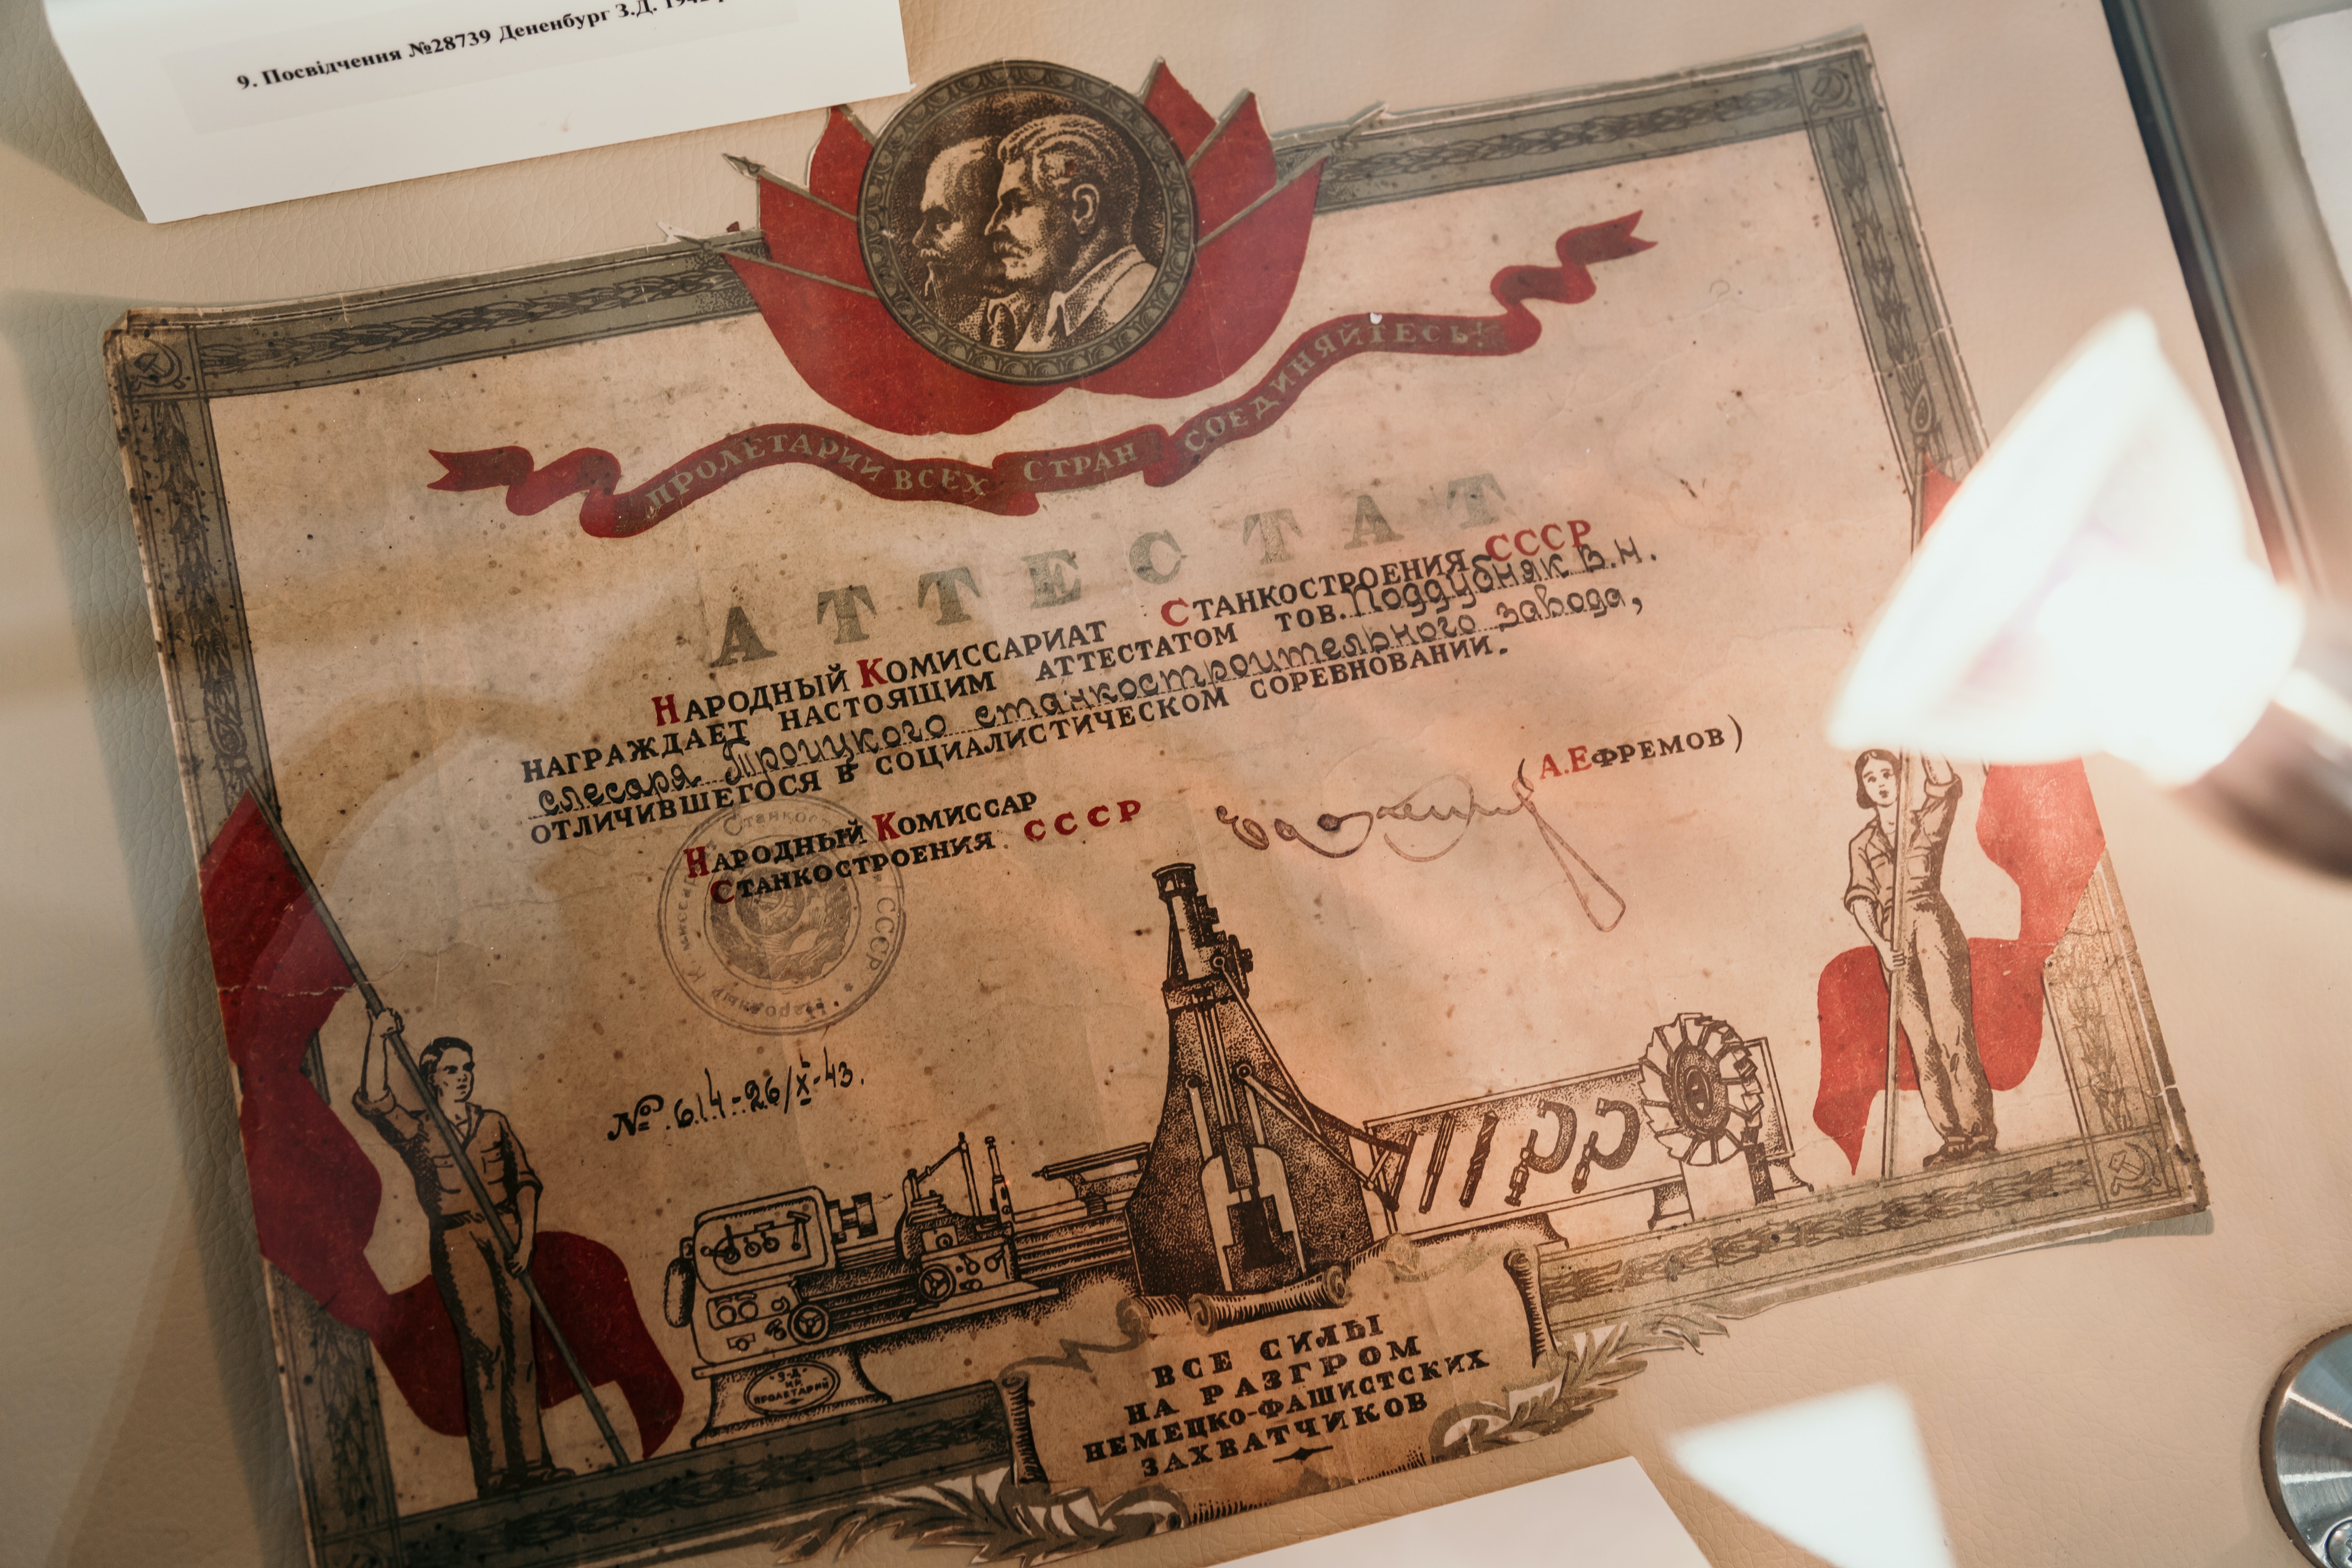 9. Посвідчення №28739 Дененбург З.Д.
ПРОЛЕТАРИИ ВСЕХ СТРАН СОЕДИНЯЙТЕСЬ!
АТТЕСТАТ
НАРОДНЫЙ КОМИССАРИАТ СТАНКОСТРОЕНИЯ СССР
НАГРАЖДАЕТ НАСТОЯЩИМ АТТЕСТАТОМ ТОВ. Поддубняк В.Н.
слесаря Троицкого станкостроительного завода,
ОТЛИЧИВШЕГОСЯ В СОЦИАЛИСТИЧЕСКОМ СОРЕВНОВАНИИ.
НАРОДНЫЙ КОМИССАР
СТАНКОСТРОЕНИЯ СССР
(А.ЕФРЕМОВ)
Народный СССР
№ 614-26/X-43.
ПРОЛЕТАРИЙ
ВСЕ СИЛЫ
НА РАЗГРОМ
НЕМЕЦКО-ФАШИСТСКИХ
ЗАХВАТЧИКОВ